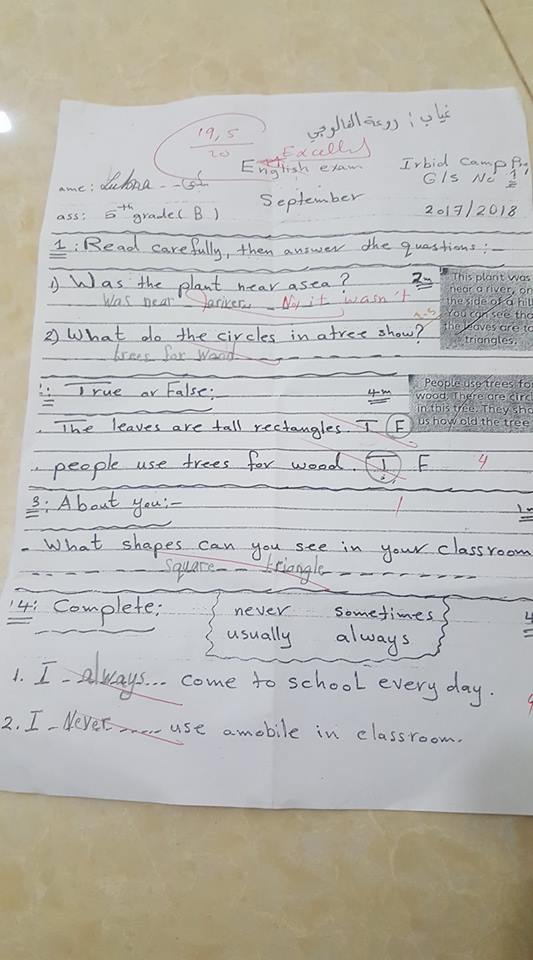 غياب : روعة الفالوجي
19,5
20
Excellent
English exam
Irbid Camp Pr,
G/S No 1
ame: Lulona
September
ass: 5th grade (B)
2017/2018
1: Read carefully, then answer the questions:-
1) Was the plant near asea?
2m
was near a river No it wasn't
This plant was
near a river, on
the side of a hill
You can see tha
the leaves are ta
triangles.
2) What do the circles in atree show?
trees for wood
True or False:
4m
People use trees fo
wood. There are circl
in this tree. They sho
us how old the tree
. The leaves are tall rectangles. T F
. people use trees for wood. T F
4
3: About you:-
1
- What shapes can you see in your classroom
square -- triangle
4: Complete:
never sometimes
usually always
4
1. I - always... come to school every day.
2. I - Never ..... use amobile in classroom.